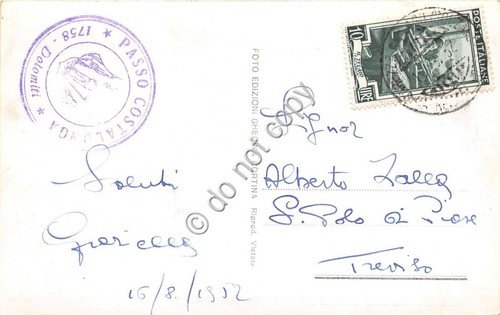 ★ PASSO COSTALUNGA ★
1758 - Dolomiti
Saluti
Graziella
16/8/1952
FOTO EDIZIONI GHEDINA CORTINA Riprod. Vietata
do not copy
POSTE ITALIANE
10 LIRE
Signor
Alberto Zalla
S. Polo di Piave
Treviso